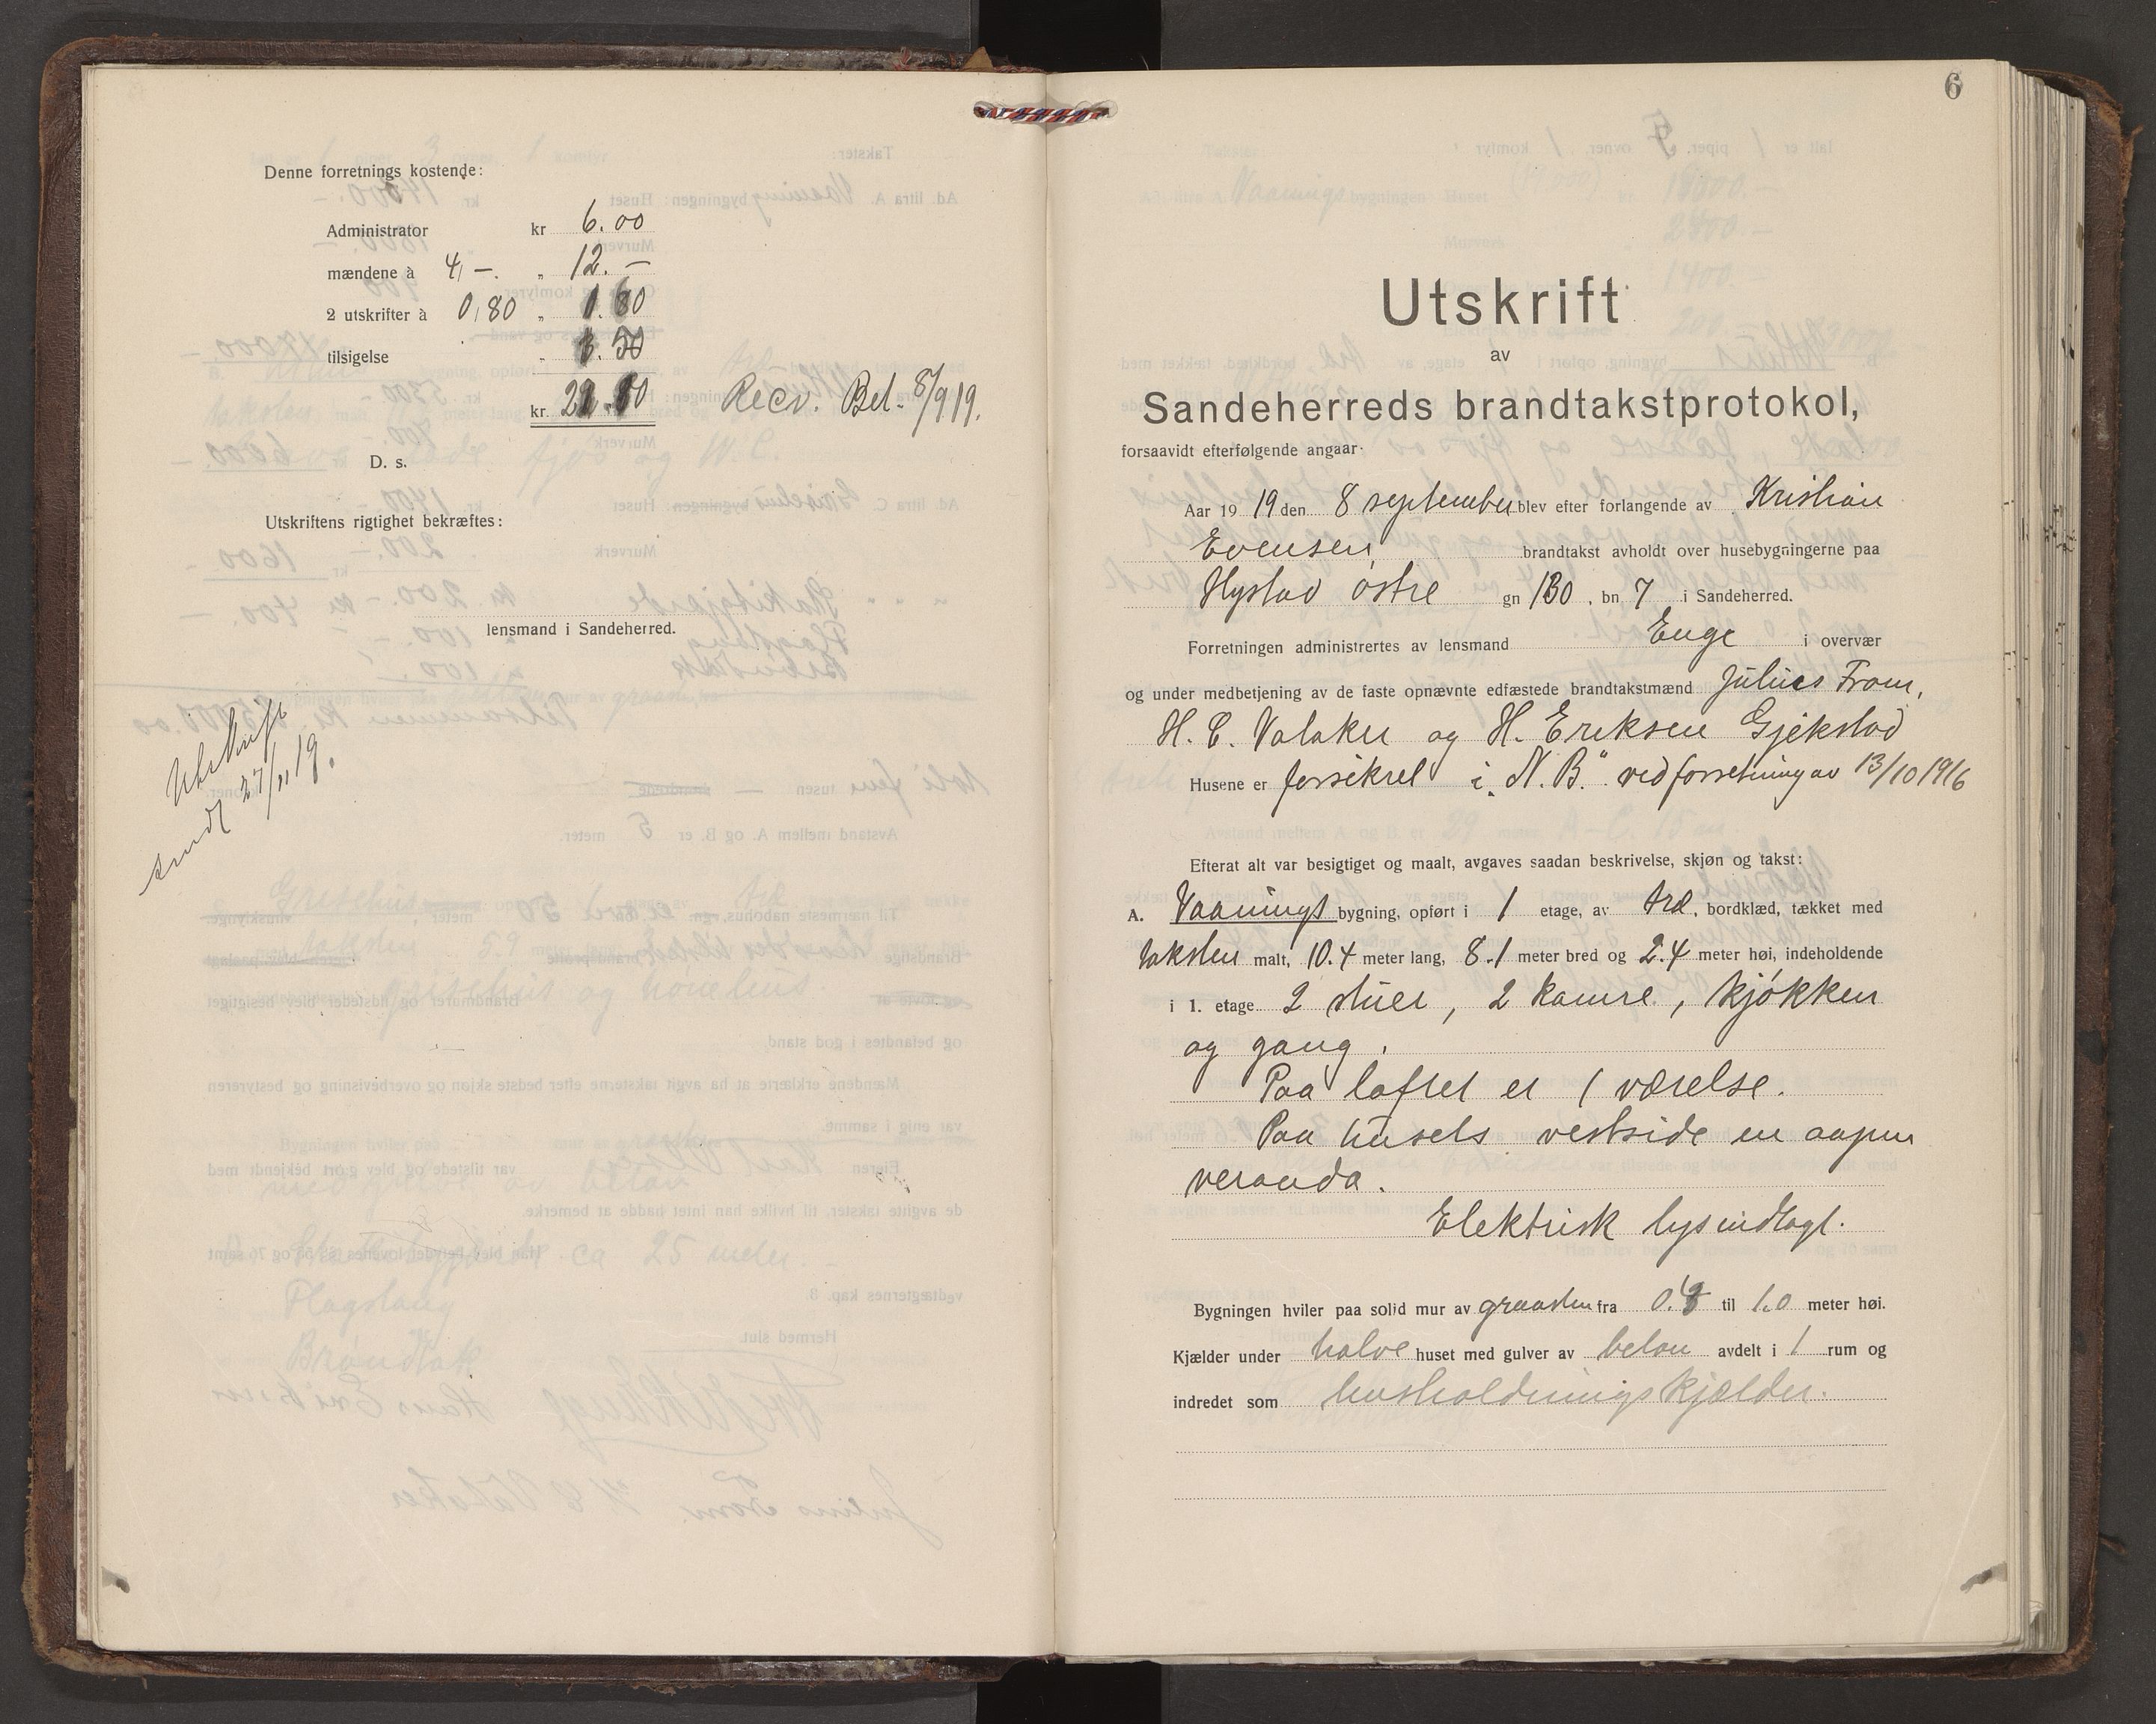 Denne forretnings kostende:
Administrator kr 6.00
mændene à 4,-. „ 12.-
2 utskrifter à 0,80 „ 1.60
tilsigelse „ .50
kr. Recv. Bet. 8/9 19.
D. s.
Utskriftens rigtighet bekræftes:
lensmand i Sandeherred.
Utskrift
sendt 27/11 19.
6
Utskrift
av
Sandeherreds brandtakstprotokol,
forsaavidt efterfølgende angaar:
Aar 19 19 den 8 september blev efter forlangende av Kristian
Evensen brandtakst avholdt over husebygningerne paa
Hystad østre gn 130 , bn 7 i Sandeherred.
Forretningen administrertes av lensmand Enge i overvær
og under medbetjening av de faste opnævnte edfæstede brandtakstmænd Julius From,
H. C. Valaker og H. Eriksen Gjekstad
Husene er forsikret i „N. B." ved forretning av 13/10 1916
Efterat alt var besigtiget og maalt, avgaves saadan beskrivelse, skjøn og takst:
A. Vaanings bygning, opført i 1 etage, av træ, bordklæd, tækket med
taksten malt, 10.4 meter lang, 8.1 meter bred og 2.4 meter høi, indeholdende
i 1. etage 2 stuer, 2 kamre, kjøkken
og gang.
Paa loftet er 1 værelse.
Paa husets vestside en aapen
veranda.
Elektrisk lys indlagt.
Bygningen hviler paa solid mur av graasten fra til 1.0 meter høi.
Kjælder under halve huset med gulver av beton avdelt i 1 rum og
indredet som husholdningskjælder.